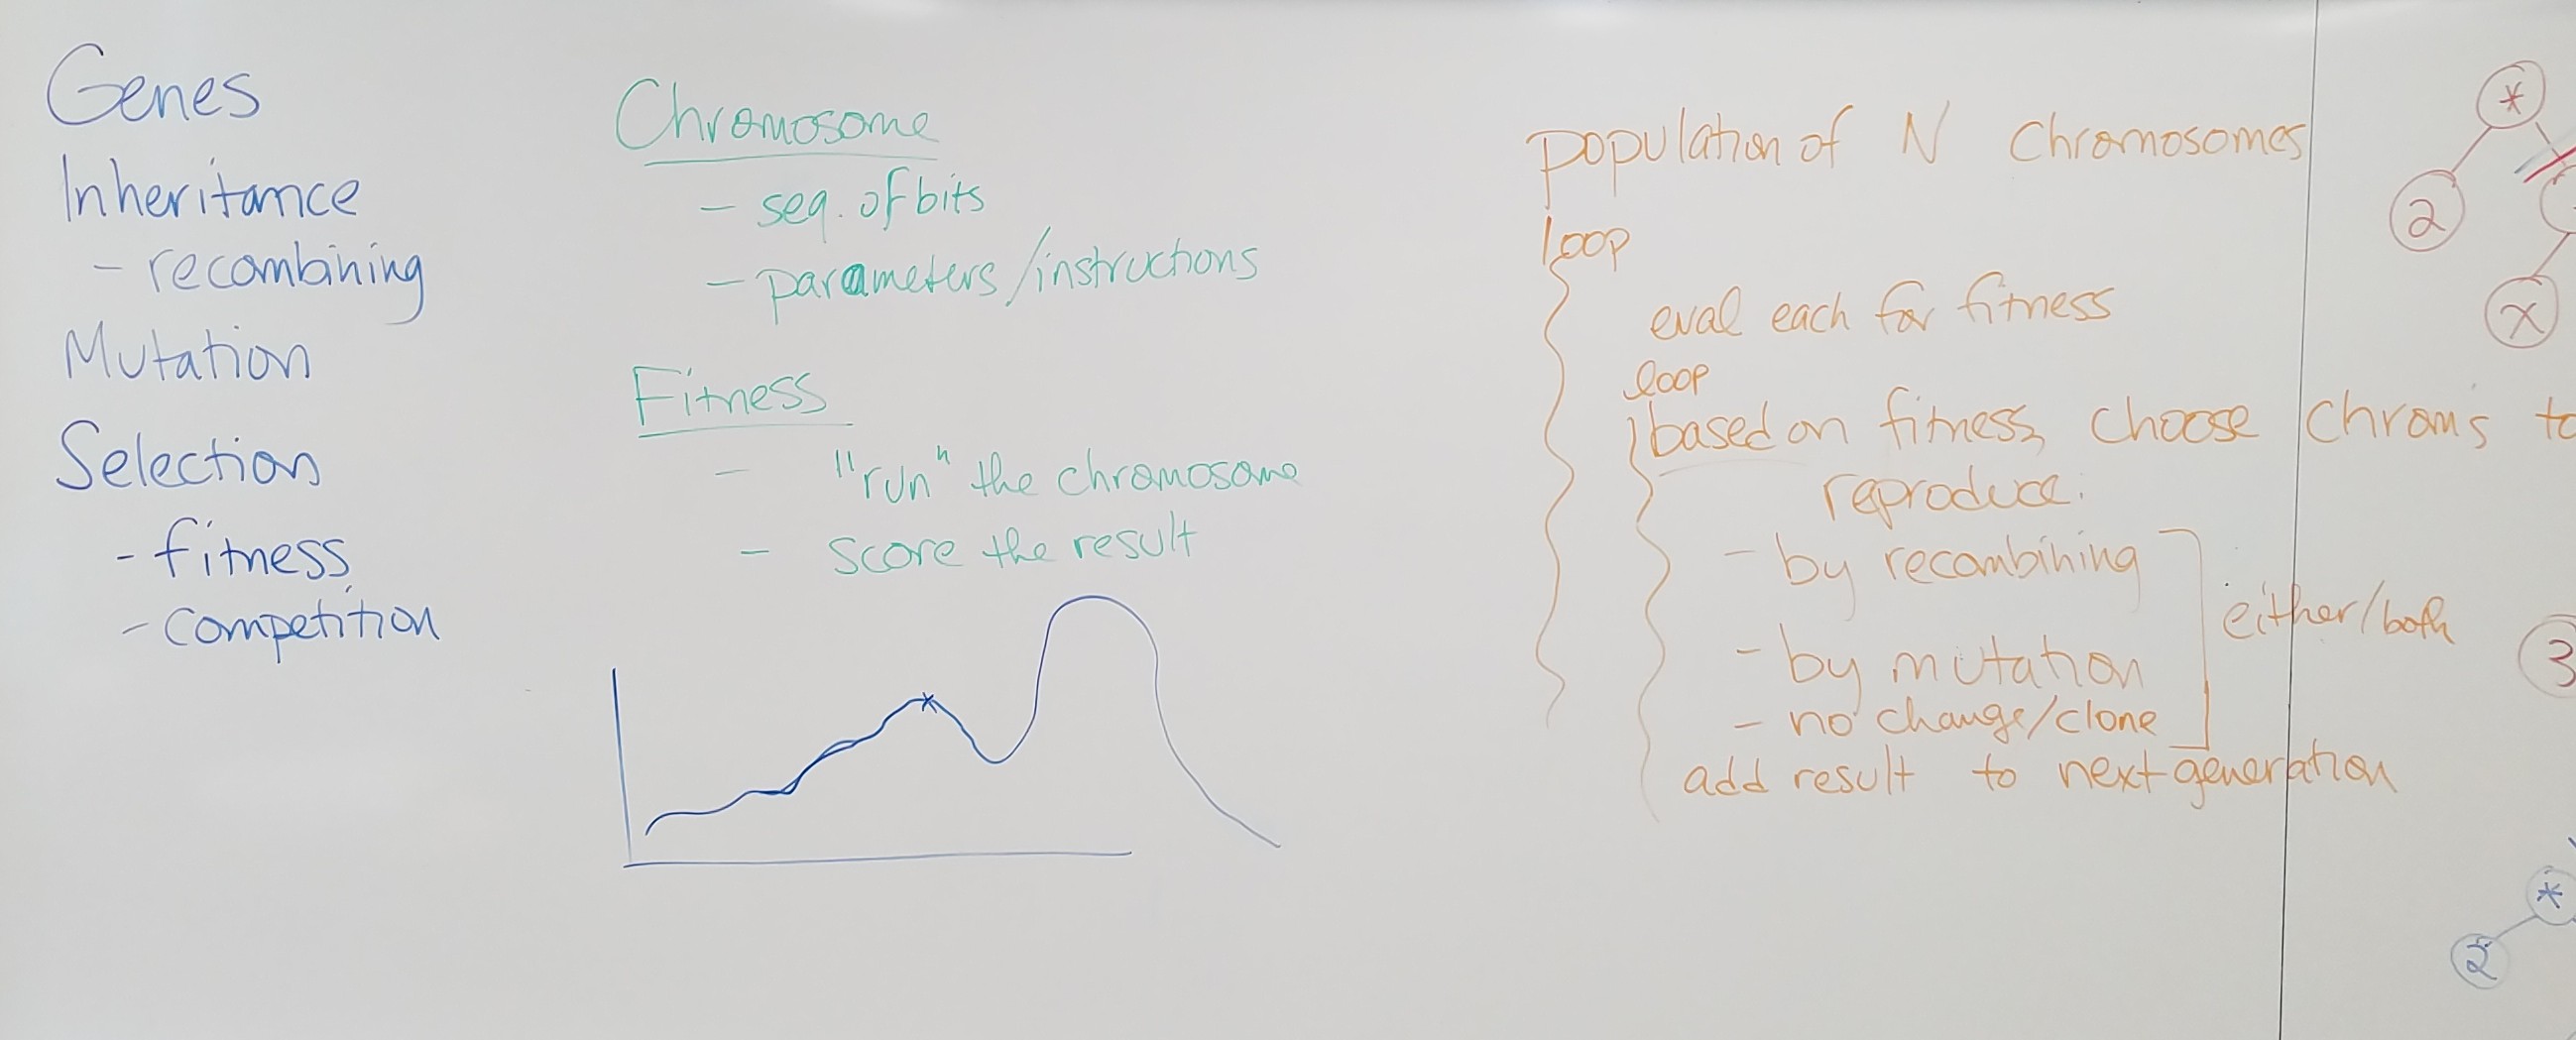 Genes
Inheritance
- recombining
Mutation
Selection
- fitness
- competition
Chromosome
- seq. of bits
- parameters/instructions
Fitness
- "run" the chromosome
- score the result
population of N Chromosomes
loop
eval each for fitness
loop
based on fitness, choose chrom's to
reproduce:
- by recombining
- by mutation
- no change/clone
either/both
add result to next generation
*
2
x
3
*
2